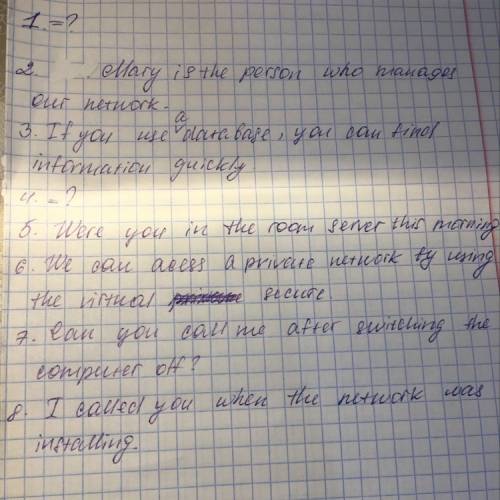 1. = ?
2. Mary is the person who manages
our network.
3. If you use a database, you can find
information quickly
4. = ?
5. Were you in the room server this morning
6. We can acess a private network by using
the virtual secure.
7. Can you call me after switching the
computer off?
8. I called you when the network was
installing.